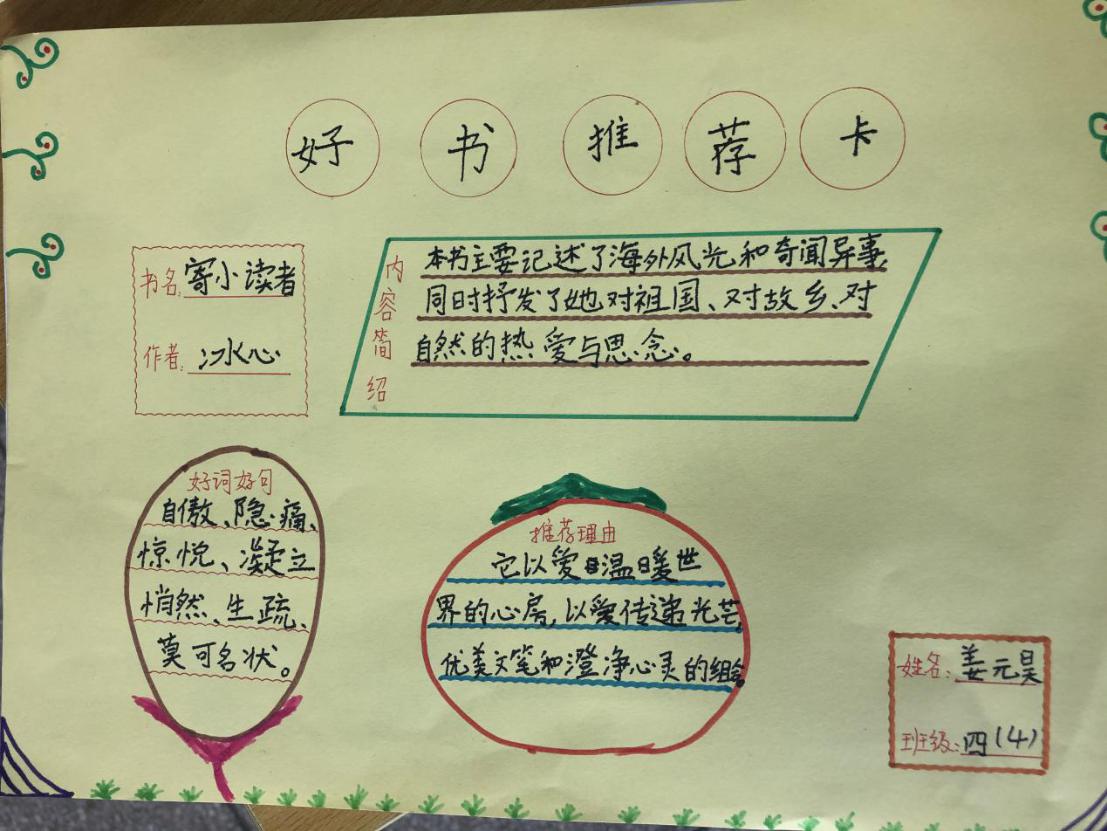 好书推荐卡
书名:寄小读者
作者:冰心
内容简绍
本书主要记述了海外风光和奇闻异事,
同时抒发了她对祖国、对故乡、对
自然的热爱与思念。
好词好句
自傲、隐痛、
惊悦、凝立
悄然、生疏、
莫可名状。
推荐理由
它以爱温暖世
界的心房,以爱传递光芒,
优美文笔和澄净心灵的组合。
姓名:姜元昊
班级:四(4)